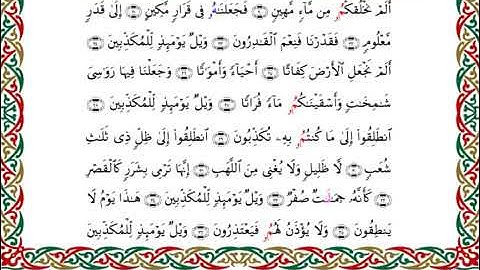 أَلَمْ نَخْلُقكُّمُۥ مِن مَّآءٍ مَّهِينٍ فَجَعَلْنَٰهُۥ فِى قَرَارٍ مَّكِينٍ إِلَىٰ قَدَرٍ
مَّعْلُومٍ فَقَدَرْنَا فَنِعْمَ ٱلْقَٰدِرُونَ وَيْلٌ يَوْمَئِذٍ لِّلْمُكَذِّبِينَ
أَلَمْ نَجْعَلِ ٱلْأَرْضَ كِفَاتًا أَحْيَآءً وَأَمْوَٰتًا وَجَعَلْنَا فِيهَا رَوَٰسِىَ
شَٰمِخَٰتٍ وَأَسْقَيْنَٰكُمُۥ مَآءً فُرَاتًا وَيْلٌ يَوْمَئِذٍ لِّلْمُكَذِّبِينَ
ٱنطَلِقُوٓا۟ إِلَىٰ مَا كُنتُمُۥ بِهِۦ تُكَذِّبُونَ ٱنطَلِقُوٓا۟ إِلَىٰ ظِلٍّ ذِى ثَلَٰثِ
شُعَبٍ لَّا ظَلِيلٍ وَلَا يُغْنِى مِنَ ٱللَّهَبِ إِنَّهَا تَرْمِى بِشَرَرٍ كَٱلْقَصْرِ
كَأَنَّهُۥ جِمَٰلَٰتٌ صُفْرٌ وَيْلٌ يَوْمَئِذٍ لِّلْمُكَذِّبِينَ هَٰذَا يَوْمُ لَا
يَنطِقُونَ وَلَا يُؤْذَنُ لَهُمُۥ فَيَعْتَذِرُونَ وَيْلٌ يَوْمَئِذٍ لِّلْمُكَذِّبِينَ